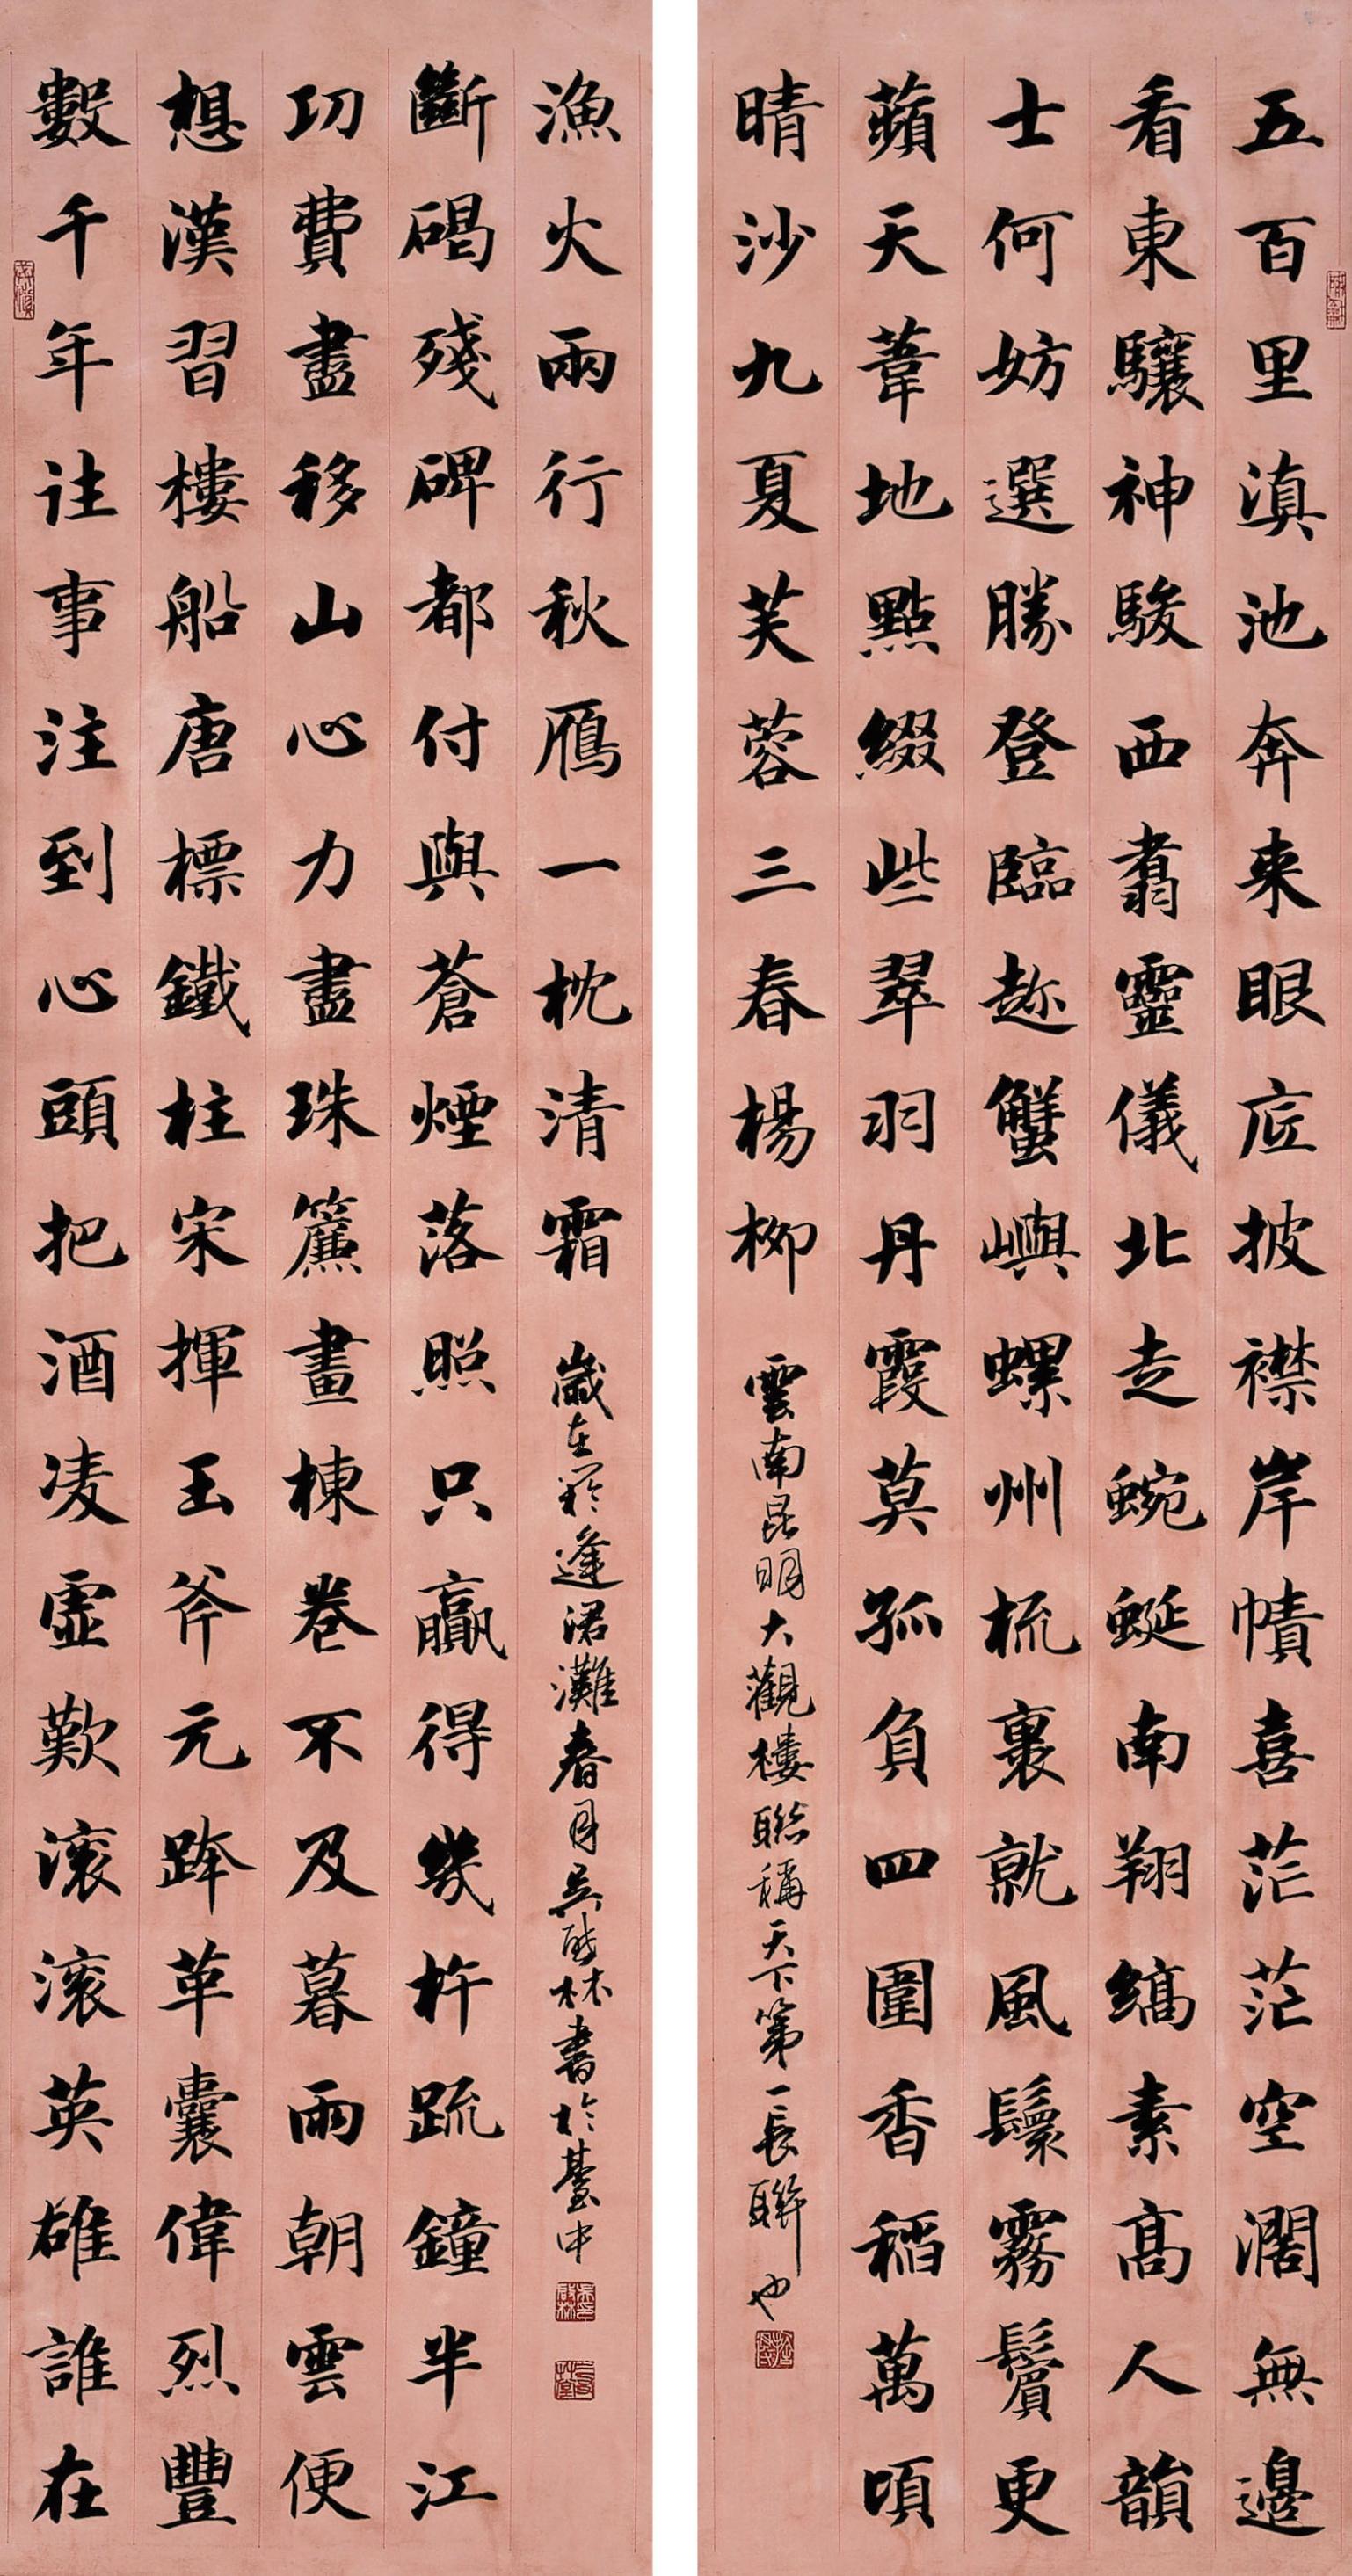 五百里滇池奔來眼底披襟岸幘喜茫茫空闊無邊
看東驤神駿西翥靈儀北走蜿蜒南翔縞素高人韻
士何妨選勝登臨趂蟹嶼螺州梳裹就風鬟霧鬢更
蘋天葦地點綴些翠羽丹霞莫孤負四圍香稻萬頃
晴沙九夏芙蓉三春楊柳 雲南昆明大觀樓聯稱天下第一長聯也
數千年往事注到心頭把酒凌虛歎滾滾英雄誰在
想漢習樓船唐標鐵柱宋揮玉斧元跨革囊偉烈豐
功費盡移山心力盡珠簾畫棟卷不及暮雨朝雲便
斷碣殘碑都付與蒼煙落照只贏得幾杵疏鐘半江
漁火兩行秋鴈一枕清霜 歲在於逢涒灘春月吳啟林書於臺中